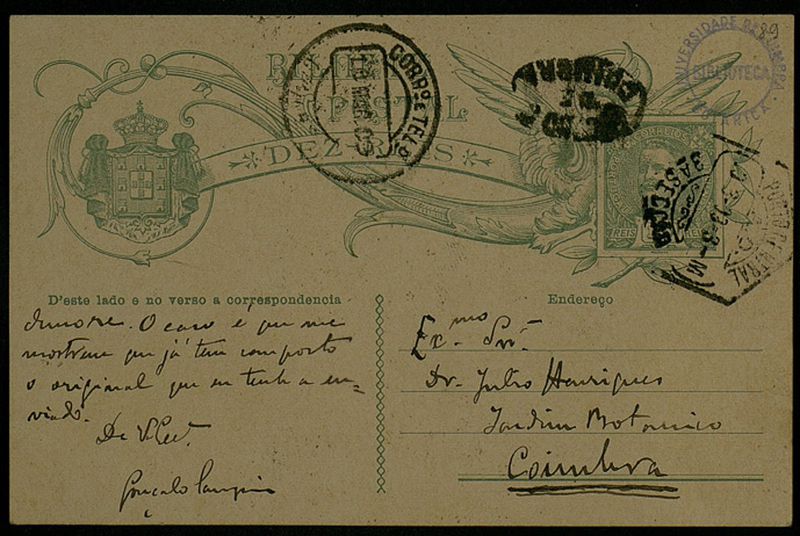 89
BILHETE
POSTAL
DEZ REIS
CORRO. E TELO.
COIMBRA
UNIVERSIDADE DE COIMBRA
BIBLIOTECA
BOTANICA
CORREIOS
REIS
3A SECÇÃO
CENTRAL
D'este lado e no verso a correspondencia
demore. O caso é que me
mostrem que já tem composto
o original que eu tenho en-
viado.
De V. Ex.ª
Gonçalo Sampaio
Endereço
Ex.mo Snr.
Dr. Julio Henriques
Jardim Botanico
Coimbra